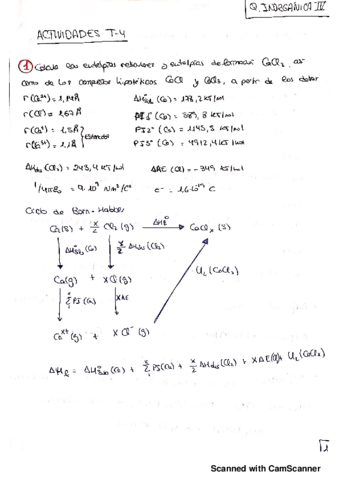 Q. INORGÁNICA III
ACTIVIDADES T-4
① Calcula las entalpías reticulares y entalpías de formación CaCl₂, así
como de los compuestos hipotéticos CaCl y CaCl₃, a partir de los datos
r(Ca²⁺) = 1,14Å ΔH°sub (Ca) = 178,2 kJ/mol
r(Cl⁻) = 1,67Å PI1 (Ca) = 589,8 kJ/mol
r(Ca⁺) = 1,5Å PI2 (Ca) = 1145,5 kJ/mol
r(Ca³⁺) = 1,1Å Estimados PI3 (Ca) = 4912,4 kJ/mol
ΔHdis (Cl₂) = 243,4 kJ/mol ΔAE (Cl) = -349 kJ/mol
1/4πε₀ = 9·10⁹ Nm²/C² e⁻ = 1,6·10⁻¹⁹ C
Ciclo de Born-Haber
Ca(s) + x/2 Cl₂(g) ΔH°f CaClx (s)
ΔH°sub (Ca) x/2 ΔHdis (Cl₂)
Ca(g) + x Cl(g)
Σ PI (Ca) x AE UL (CaClx)
Caˣ⁺ (g) + x Cl⁻ (g)
ΔHf = ΔH°sub (Ca) + Σ PI (Ca) + x/2 ΔHdis (Cl₂) + x ΔE (Cl) + UL (CaClx)
Scanned with CamScanner